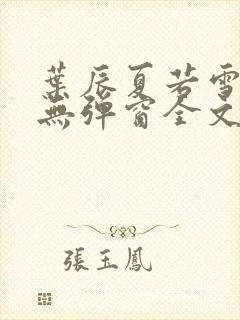 葉辰夏若雪
無彈窗全文
張玉鳳